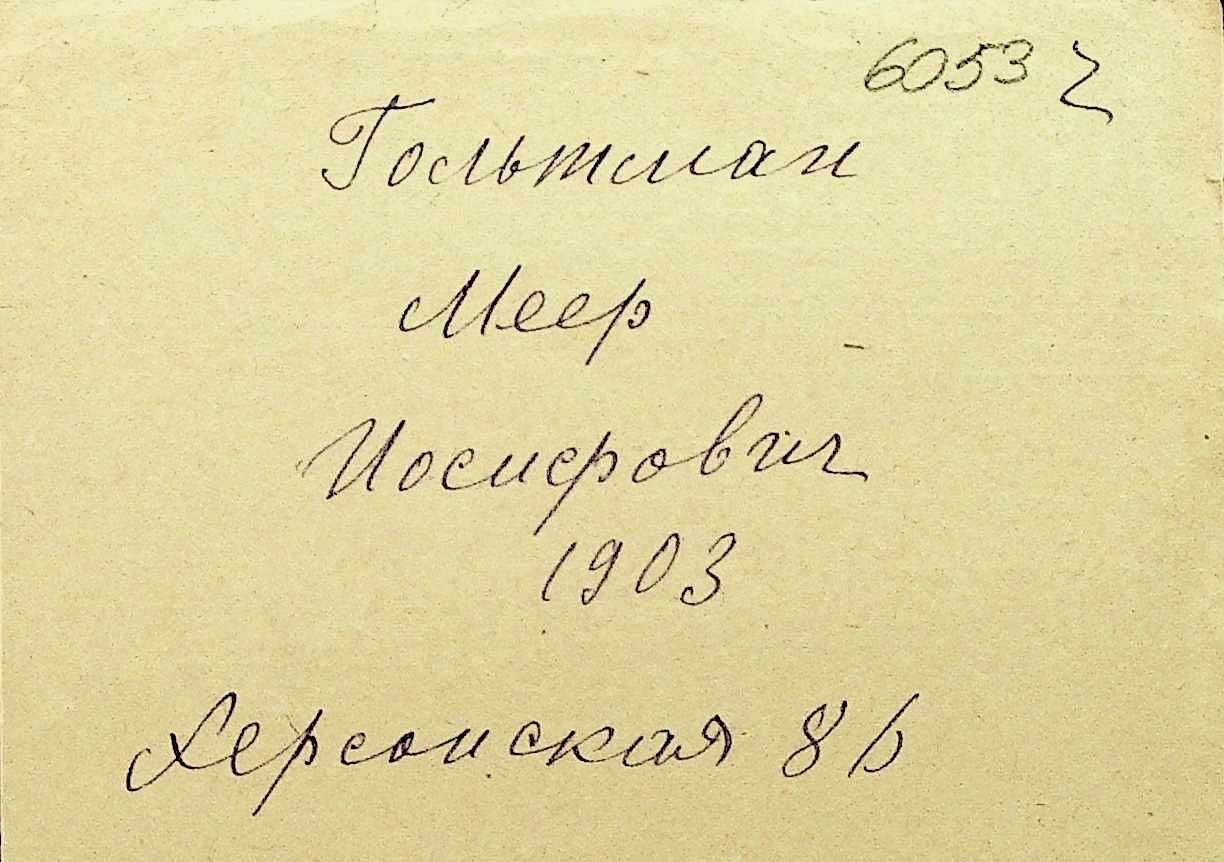 6053
Гольтман
Меер
Иосифович
1903
Херсонская